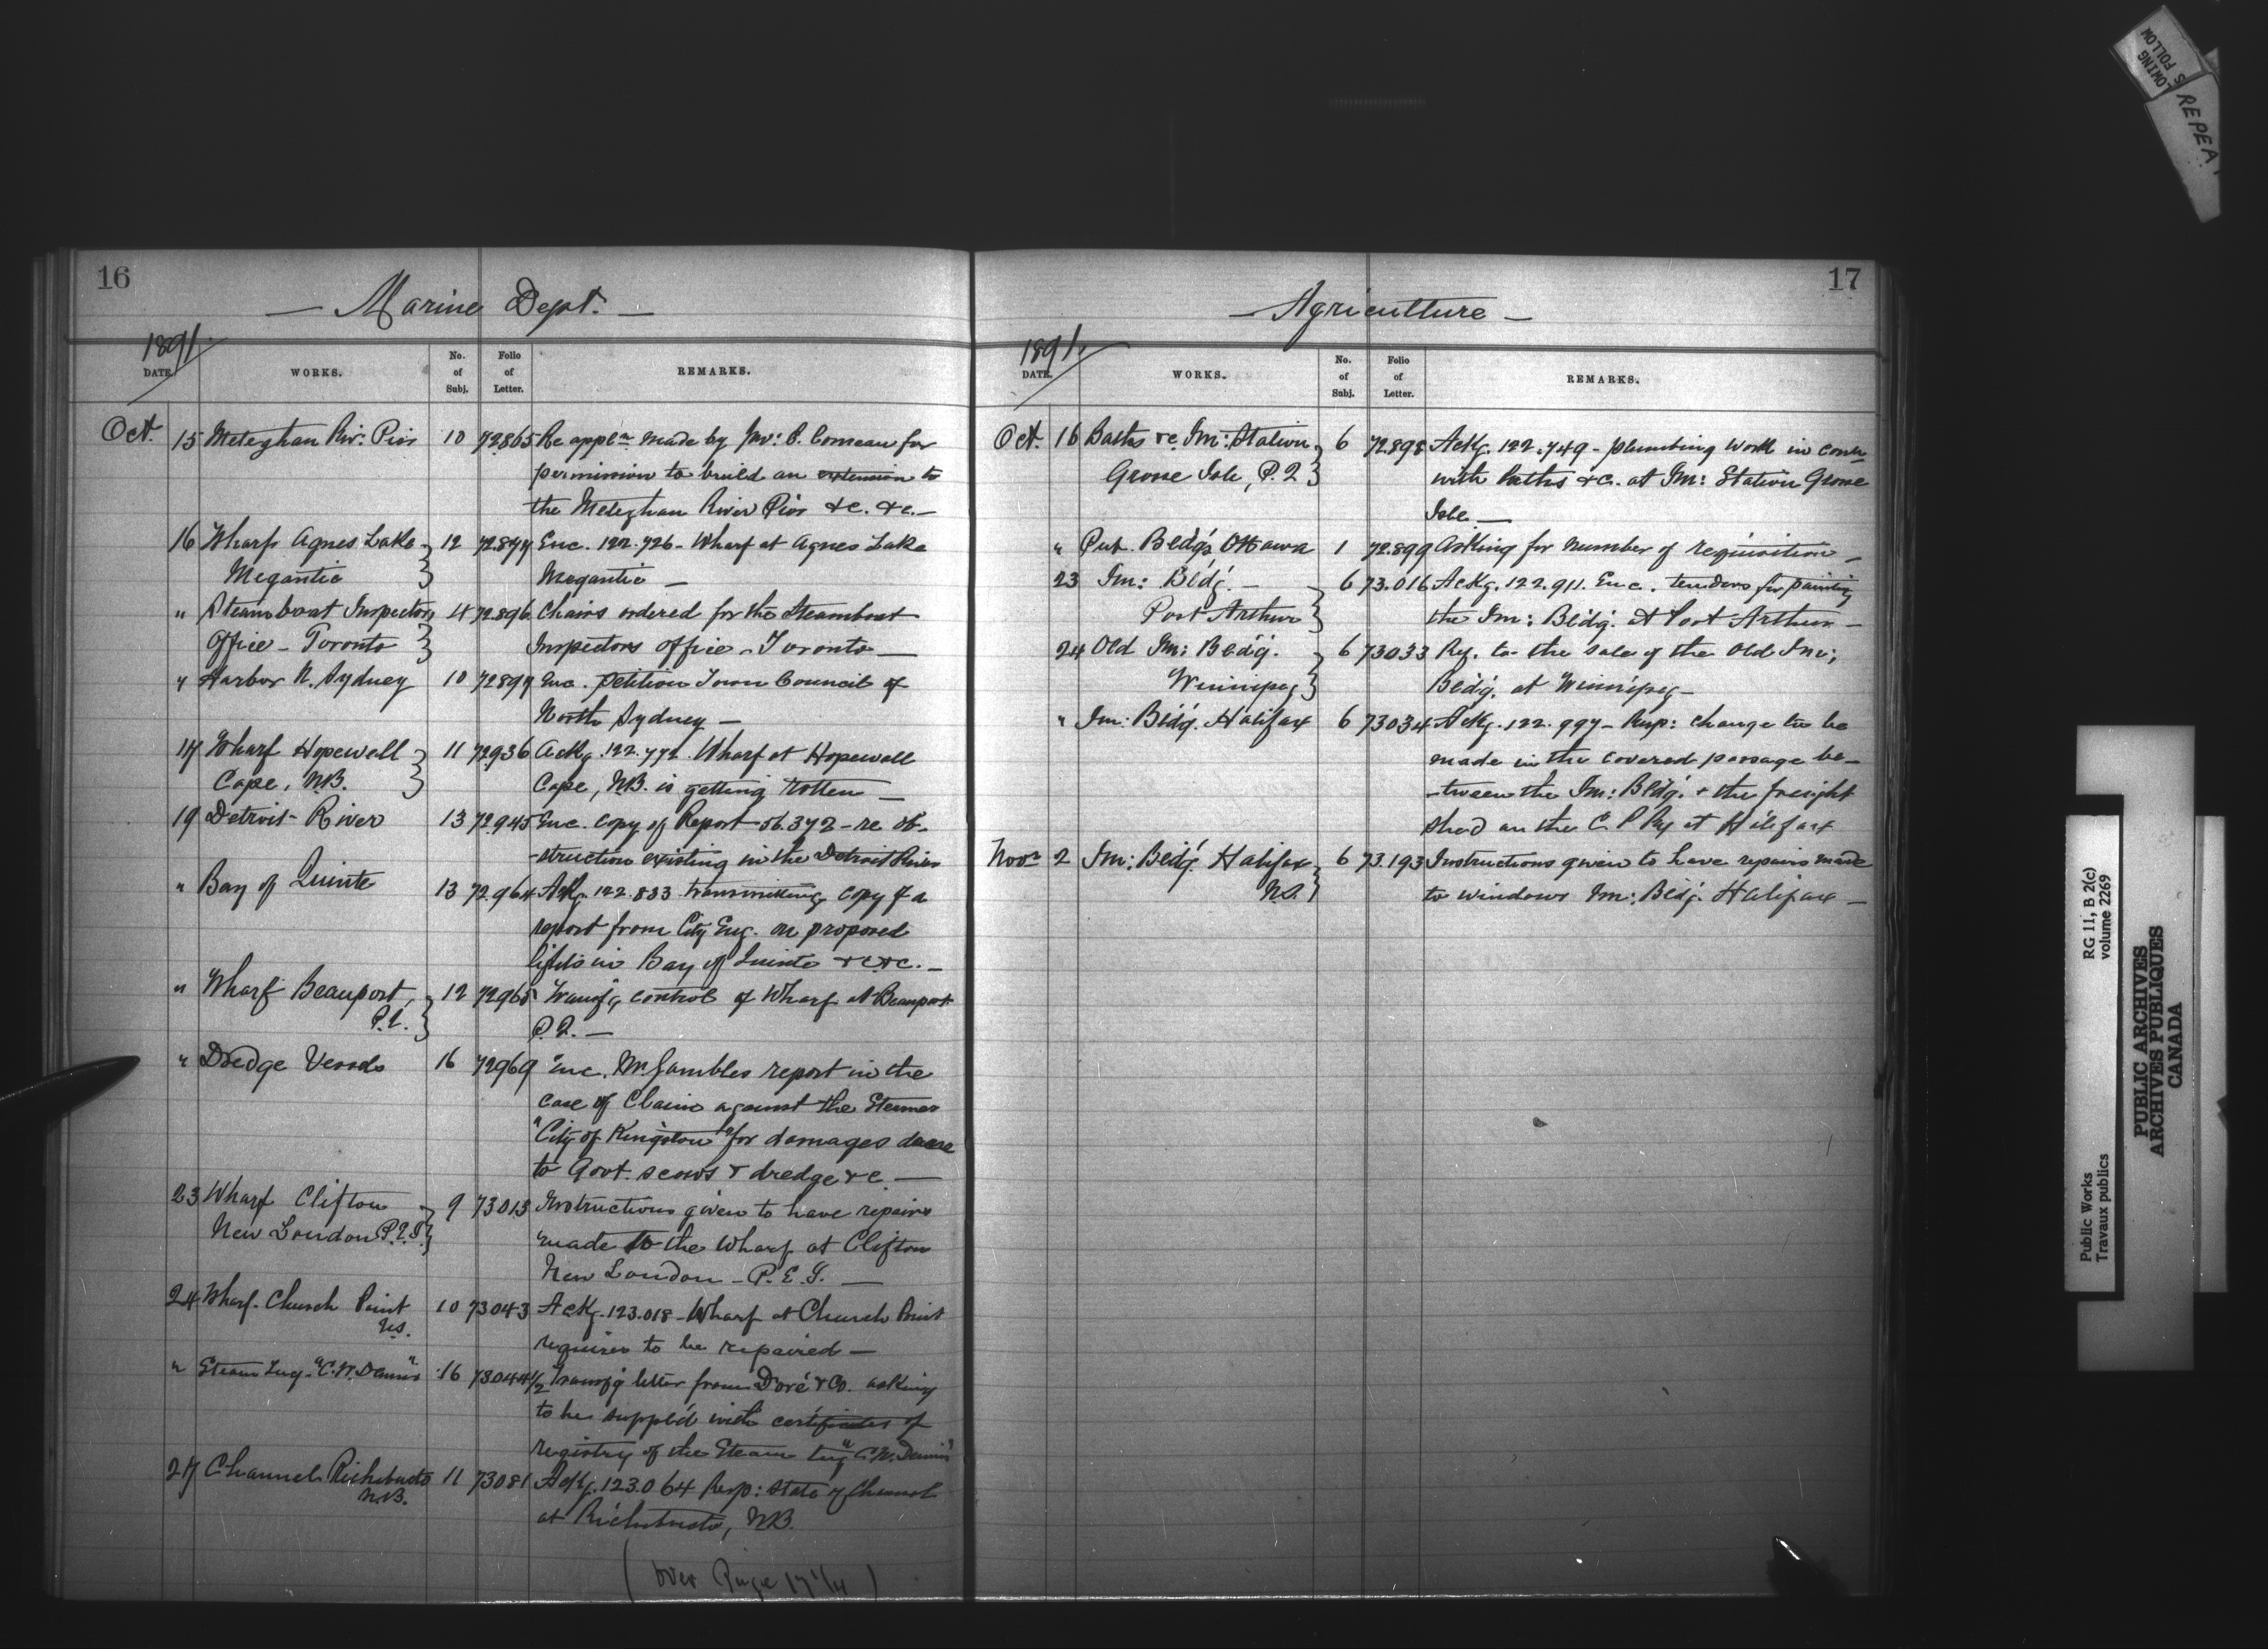 16
— Marine Dept. —
1891.
DATE. WORKS. No. of Subj. Folio of Letter. REMARKS.
Oct. 15 Meteghan Riv: Pier 10 72865 Re appln made by Jno: B. Comeau for
permission to build an extension to
the Meteghan River Pier &c. &c. —
16 Wharf Agnes Lake 12 72877 Enc. 122.726 - Wharf at Agnes Lake
Megantic Megantic —
" Steamboat Inspectors 14 72896 Chairs ordered for the Steamboat
Office - Toronto Inspectors Office - Toronto —
" Harbor N. Sydney 10 72897 Enc. petition Town Council of
North Sydney —
17 Wharf Hopewell 11 72936 Ackg. 122.772 Wharf at Hopewell
Cape, N.B. Cape, N.B. is getting rotten —
19 Detroit River 13 72945 Enc. copy of Report 56.372 - re ob-
-struction existing in the Detroit River
" Bay of Quinte 13 72.964 Ackg. 122.833 transmitting copy of a
report from City Eng. on proposed
lights in Bay of Quinte &c &c. —
" Wharf Beauport, 12 72965 Transfg control of Wharf at Beauport
P.Q. P.Q. —
" Dredge Vessels 16 72969 Enc. Mr. Gambles report in the
case of Claim against the Steamer
"City of Kingston" for damages done
to Govt. scows & dredge &c. —
23 Wharf Clifton 9 73013 Instructions given to have repairs
New London P.E.I. made to the Wharf at Clifton
New London - P.E.I. —
24 Wharf Church Point 10 73043 Ackg. 123.018 - Wharf at Church Point
N.S. requires to be repaired —
" Steam Tug "C.N. Dennis" 16 73044 1/2 Transfg letter from Doré & Co. asking
to be suppl'd with certificates of
registry of the Steam tug "C.N. Dennis"
27 Channel Richibucto 11 73081 Ackg. 123.064 Resp: state of Channel
N.B. at Richibucto, N.B.
(over Page 17 1/4)
17
— Agriculture —
1891.
DATE. WORKS. No. of Subj. Folio of Letter. REMARKS.
Oct. 16 Baths &c Im: Station 6 72.898 Ackg. 122.749 - plumbing work in conn
Grosse Isle, P.Q. with baths &c. at Im: Station Grosse
Isle —
" Pub. Bldgs Ottawa 1 72.899 Asking for number of requisition —
23 Im: Bldg. — 6 73.016 Ackg. 122.911. Enc. tenders for painting
Port Arthur the Im: Bldg. at Port Arthur —
24 Old Im: Bldg. 6 73033 Ref. to the sale of the Old Im:
Winnipeg Bldg. at Winnipeg —
" Im: Bldg. Halifax 6 73034 Ackg. 122.997 - Resp: change to be
made in the covered passage be-
-tween the Im: Bldg. & the freight
shed on the C. P Ry at Halifax
Novr 2 Im: Bldg. Halifax 6 73.193 Instructions given to have repairs made
N.S. to windows Im: Bldg. Halifax —
LOWING
S FOLLOW
REPEA
Public Works
Travaux publics
RG 11, B 2(c)
volume 2269
PUBLIC ARCHIVES
ARCHIVES PUBLIQUES
CANADA